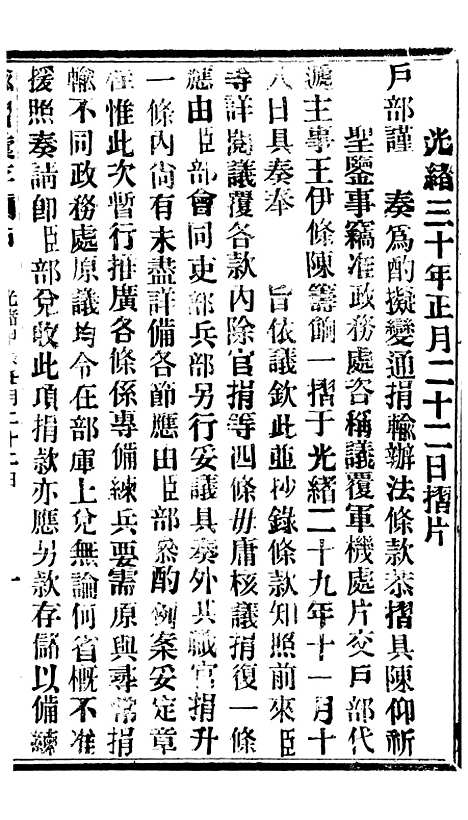 光緒三十年正月二十二日摺片
戶部謹　奏爲酌擬變通捐輸辦法條款恭摺具陳仰祈
聖鑒事竊准政務處咨稱議覆軍機處片交戶部代
遞主事王伊條陳籌餉一摺于光緒二十九年十一月十
八日具奏奉　旨依議欽此並抄錄條款知照前來臣
等詳閱議覆各款內除官捐等四條毋庸核議捐復一條
應由臣部會同吏部兵部另行妥議具奏外其職官捐升
一條內尙有未盡詳備各節應由臣部參酌例案妥定章
程惟此次暫行推廣各條係專備練兵要需原與尋常捐
輸不同政務處原議均令在部庫上兌無論何省概不准
援照奏請卽臣部兌收此項捐款亦應另款存儲以備練
光緒 正月二十二日 一